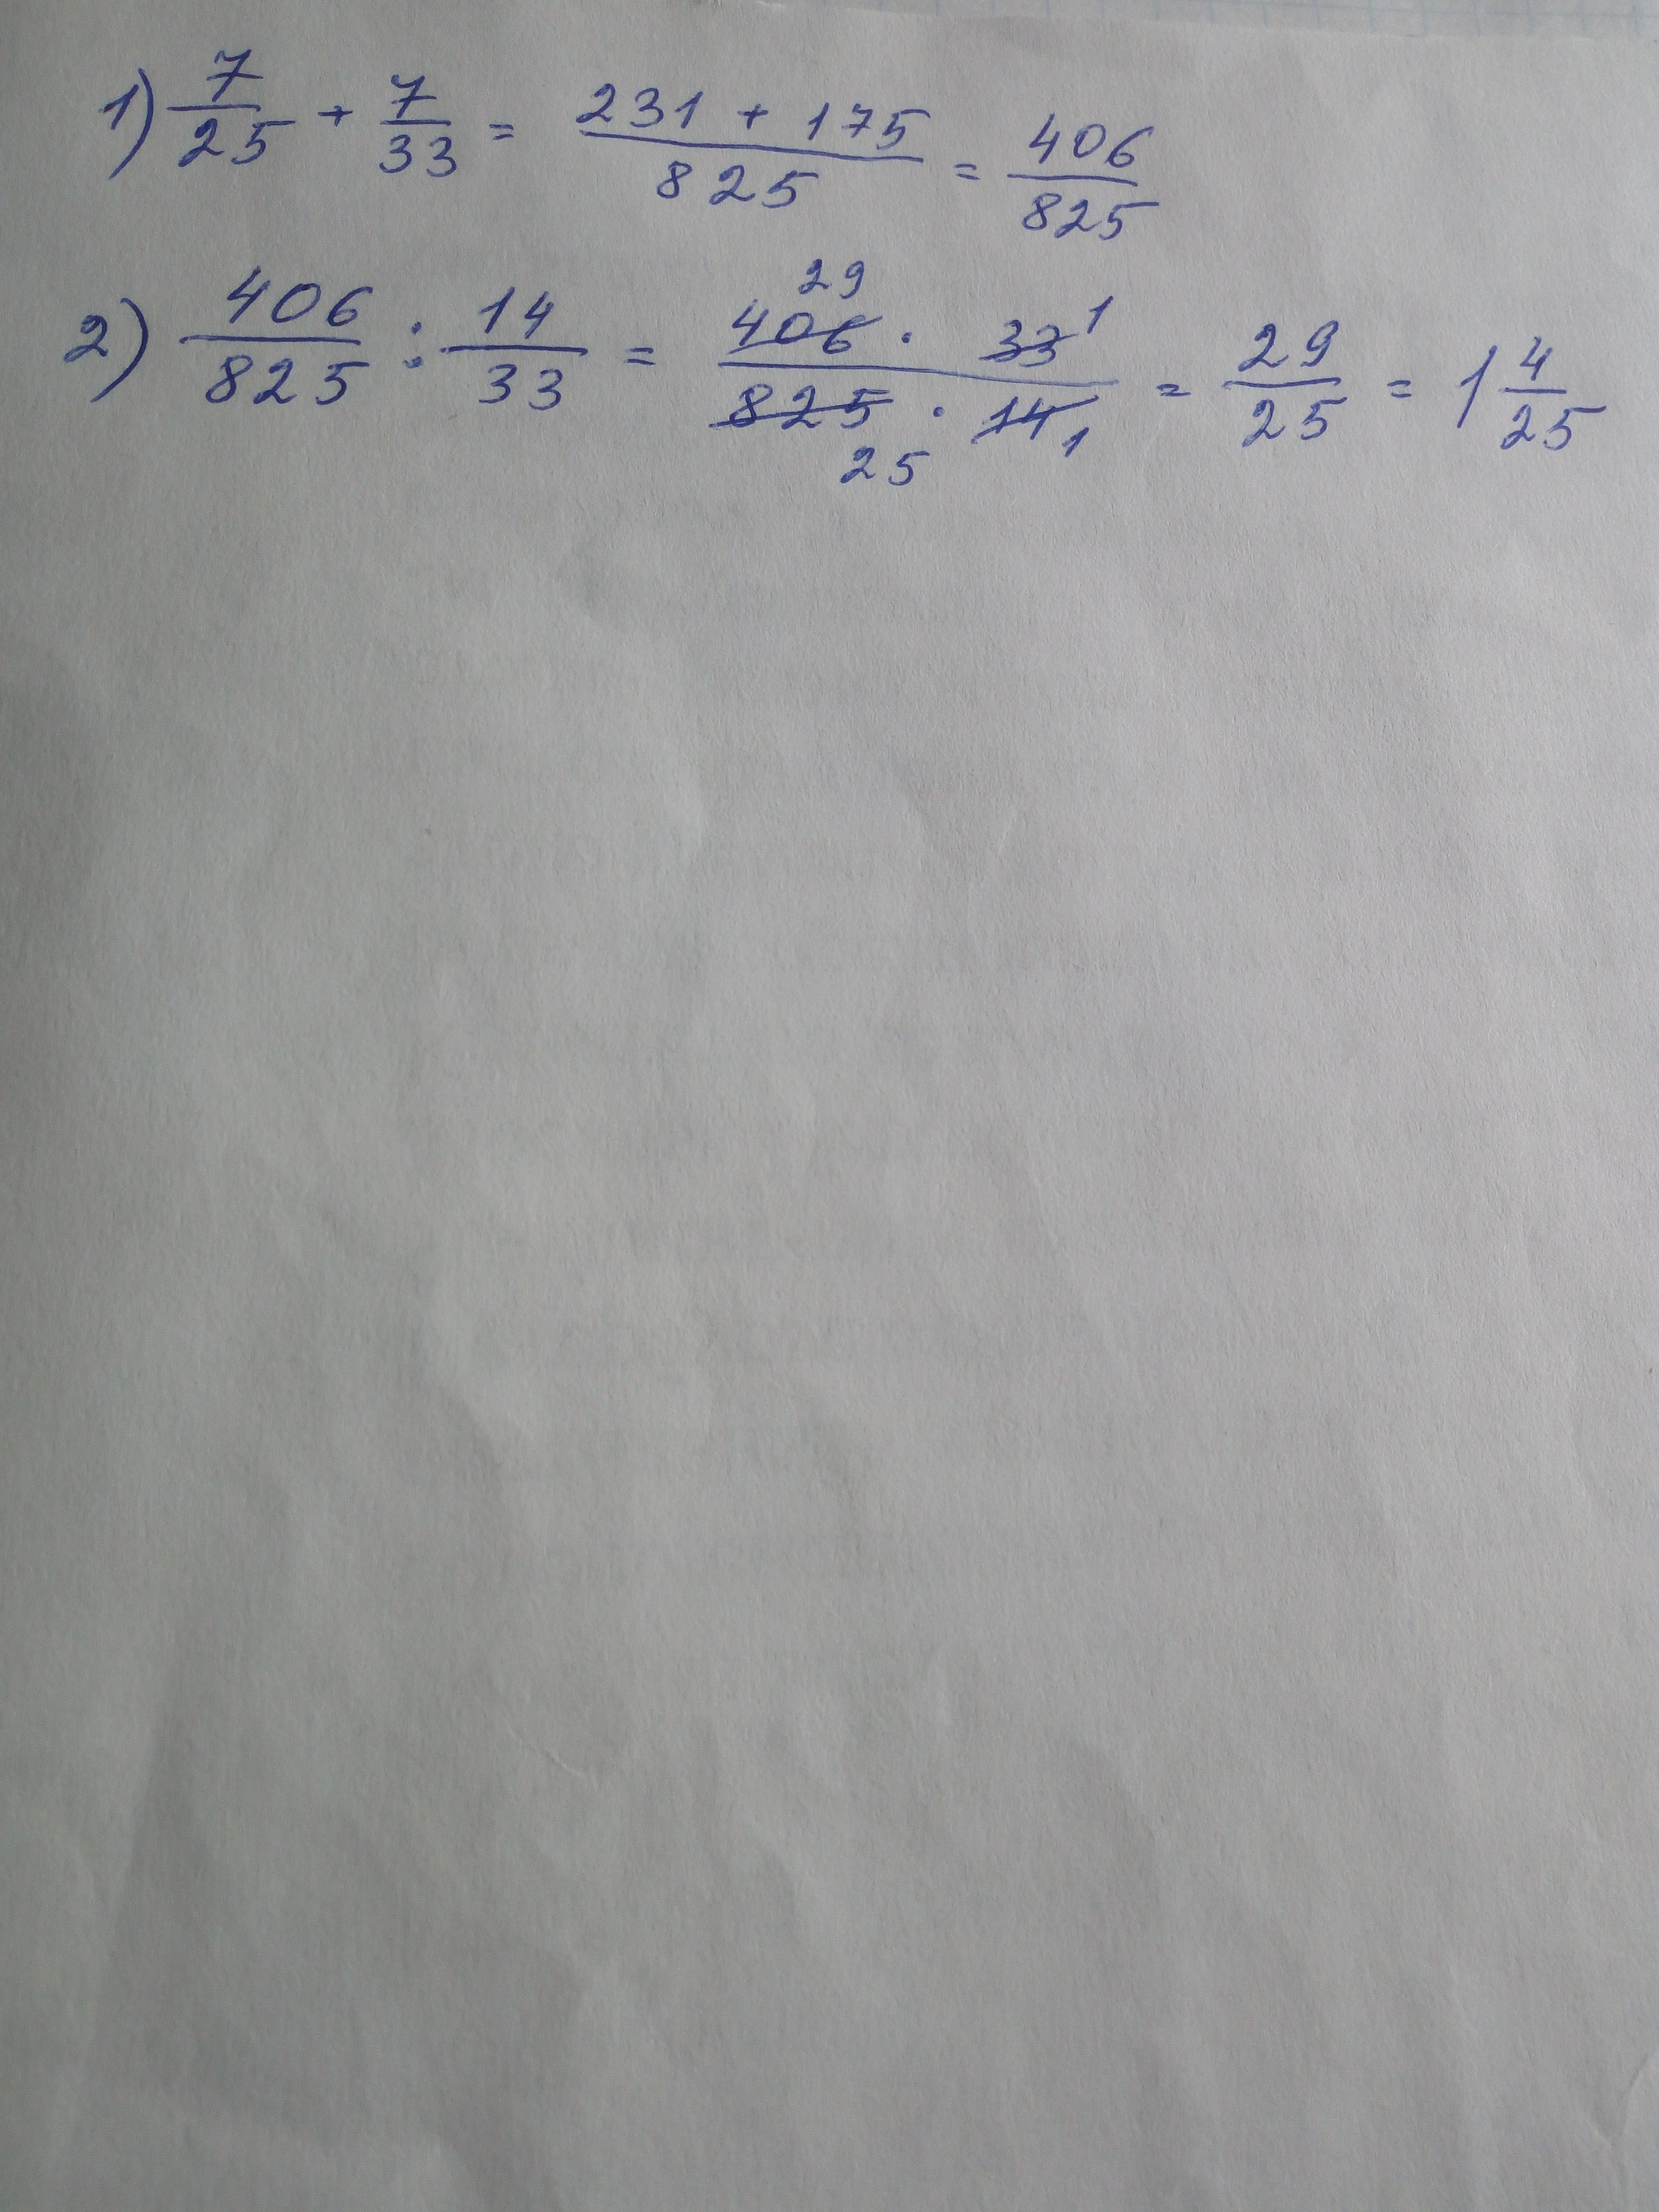 1) 7/25 + 7/33 = (231 + 175)/825 = 406/825
2) 406/825 : 14/33 = (406 29 · 33 1)/(825 25 · 14 1) = 29/25 = 1 4/25